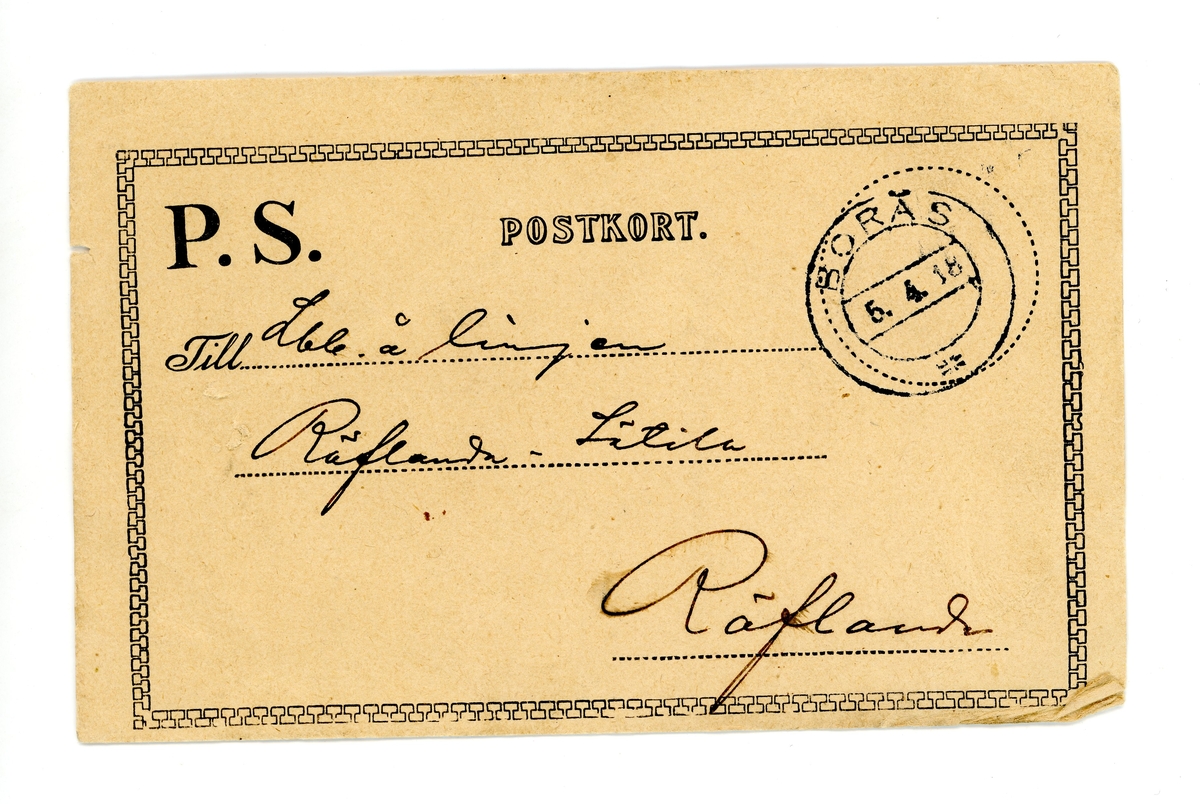 P. S.
POSTKORT.
BORÅS
5. 4. 18
Till Lbb. å linjen
Räflanda - Sätila
Räflanda